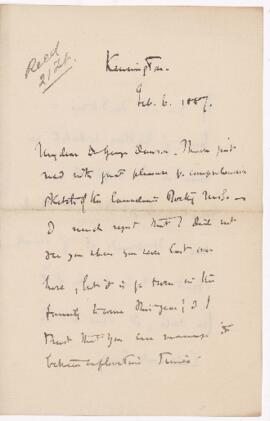 Recd
21 Feb.
Kensington.
Feb. 6. 1887.
My dear Dr George Dawson. I have just
read with great pleasure yr comprehensive
sketch of the Canadian Rocky Mts. —
I much regret that I did not
see you when you were last over
here, but it is yr turn in the
family to come this year; & I
trust that you are managing to
between exploration times.